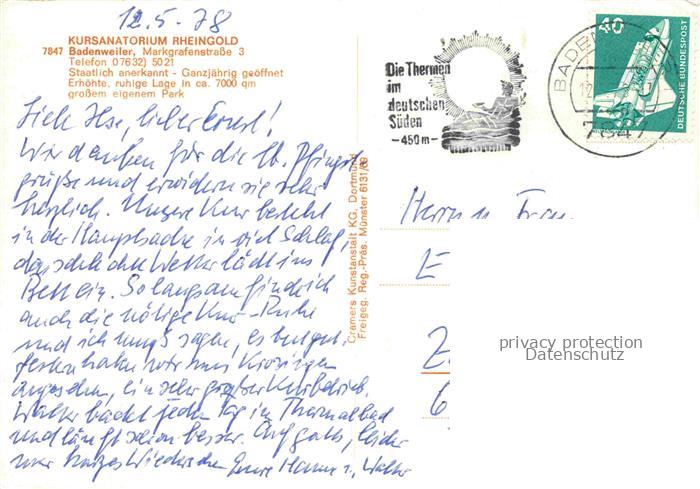 12.5.78
KURSANATORIUM RHEINGOLD
7847 Badenweiler, Markgrafenstraße 3
Telefon 07632) 5021
Staatlich anerkannt - Ganzjährig geöffnet
Erhöhte, ruhige Lage in ca. 7000 qm
großem eigenem Park
Liebe Ilse, lieber Ernst!
Wir danken für die lb. Pfingst-
grüße und erwidern sie sehr
herzlich. Unsere Kur besteht
in der Hauptsache in viel Schlaf,
das schlechte Wetter lädt ins
Bett ein. So langsam finde ich
auch die nötige Kur-Ruhe
und ich muß sagen, es tut gut.
gestern haben wir uns Krozingen
angesehen, ein sehr großer Kurbetrieb.
Walter badet jeden Tag im Thermalbad
und läuft schon besser. Alles gute, leider
nur kurzes Wiedersehen Eure Hanne u. Walter
Cramers Kunstanstalt KG, Dortmund
Freigeg. Reg.-Präs. Münster 6131/69
Die Thermen
im
deutschen
Süden
-450m-
BADEN
12
7847
40
DEUTSCHE BUNDESPOST
Herrn u. Frau
E
Z
6
privacy protection
Datenschutz